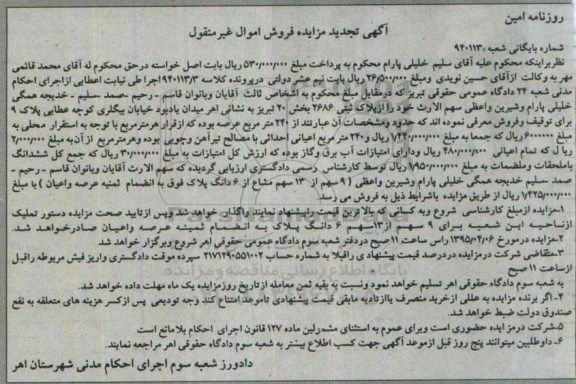 روزنامه امین
آگهی تجدید مزایده فروش اموال غیرمنقول
شماره بایگانی شعبه: ۹۴۰۱۱۳
نظر باینکه محکوم علیه آقای سلیم خلیلی پارام محکوم به پرداخت مبلغ ۵۳۰/۰۰۰/۰۰۰ ریال بابت اصل خواسته در حق محکوم له آقای محمد قائمی
مهر به وکالت از آقای حسین نویدی و مبلغ ۲۶/۵۰۰/۰۰۰ ریال بابت نیم عشر دولتی در پرونده کلاسه ۹۴۰۱۱۳/۳ اجرا طی نیابت اعطایی از اجرای احکام
مدنی شعبه ۲۴ دادگاه عمومی حقوقی تبریز که در مقابل مبلغ محکوم به اشخاص ثالث آقایان وبانوان قاسم - رحیم - صمد - سلیم - خدیجه همگی
خلیلی پارام وشیرین واعظی سهم الارث خود را از پلاک ثبتی ۲۶۸۶ بخش ۲۰ تبریز به نشانی اهر میدان بادبود خیابان بیگلری کوچه عطایی پلاک ۹
برای توقیف وفروش معرفی نموده اند که حدود ومشخصات آن عبارتند از ۲۴۰ متر مربع عرصه بوده که از قرار هر مترمربع با توجه به استقرار محلی به
مبلغ ۶۰۰۰۰۰۰ ریال که جمعا به مبلغ ۱/۴۴۰/۰۰۰/۰۰۰ ریال و ۲۴۰ متر مربع اعیانی احداثی با مصالح تیرآهن وچوبی بوده وهر مترمربع از آن به مبلغ ۲/۰۰۰/۰۰۰
ریال که تمام اعیانی ۴۸۰/۰۰۰/۰۰۰ ریال ودارای امتیازات آب برق وگاز بوده که ارزش کل امتیازات به مبلغ ۳۰/۰۰۰/۰۰۰ ریال که جمع کل ششدانگ
باملحقات وملضمات به مبلغ ۱/۹۵۰/۰۰۰/۰۰۰ ریال توسط کارشناس رسمی دادگستری ارزیابی گردیده که سهم الارث آقایان وبانوان قاسم - رحیم -
صمد - سلیم خدیجه همگی خلیلی پارام وشیرین واعظی ( ۹ سهم از ۱۳ سهم مشاع از ۶ دانگ پلاک فوق به انضمام ثمنیه عرصه واعیان ) با مبلغ
ریال از طریق مزایده باشرایط ذیل به فروش می رسد
۱-مزایده از مبلغ کارشناسی شروع وبه کسانی که بالاترین قیمت را پیشنهاد نمایند واگذار خواهد شد وپس از تایید صحت مزایده دستور تملیک
از ناحیه این شعبه برای ۹ سهم از ۱۳ سهم ۶ دانگ پلاک به انضمام ثمنیه عرصه واعیان صادر خواهد شد.
۲-مزایده در مورخ ۱۳۹۵/۰۴/۰۶ راس ساعت ۱۱ صبح در دفتر شعبه سوم دادگاه عمومی حقوقی اهر شروع وبرگزار خواهد شد
۳-متقاضی شرکت در مزایده در درصد قیمت پیشنهادی را قبلا به شماره حساب ۲۱۷۱۲۹۰۵۵۱۰۰۲ سپرده موقت دادگستری واریز فیش مربوطه را قبل
از ساعت ۱۱ صبح
به شعبه سوم دادگاه حقوقی اهر تسلیم خواهد نمود ونسبت به بقیه ثمن معامله از تاریخ روز مزایده یک ماه مهلت داده خواهد شد.
۴-اگر برنده مزایده به عللی از خرید منصرف یا از تادیه مابقی قیمت پیشنهادی تا موعد امتناع کند وجه تودیعی پس از کسر هزینه های متعلقه به نفع
صندوق دولت ضبط خواهد شد.
۵-شرکت در مزایده حضوری است وبرای عموم به استثنای مشمولین ماده ۱۲۷ قانون اجرای احکام بلامانع است
۶-داوطلبین میتوانند پنج روز قبل از موعد آگهی جهت کسب اطلاع بیشتر به شعبه سوم دادگاه حقوقی اهر مراجعه نمایند.
دادورز شعبه سوم اجرای احکام مدنی شهرستان اهر